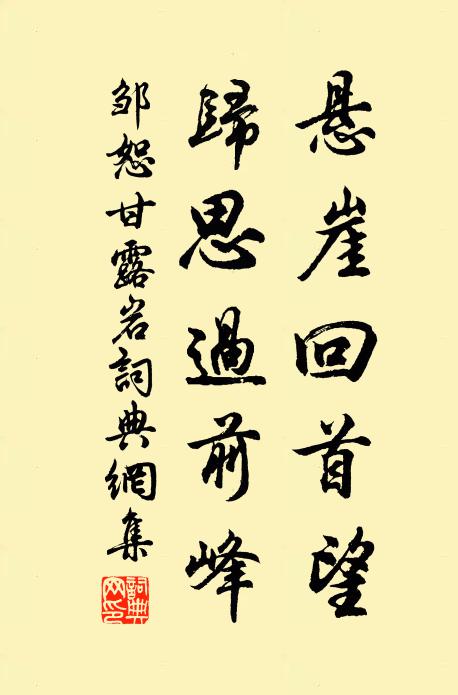 悬崖回首望
歸思過前峰
邹恕甘露岩詞典網集
詞典網印